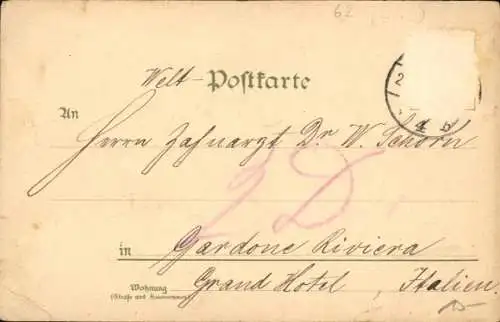 62
Welt-Postkarte
2
An
Herrn Zahnarzt Dr. W. Schorn
4 b
2 D
in Gardone Riviera
Wohnung
(Straße und Hausnummer)
Grand Hotel, Italien.
15-